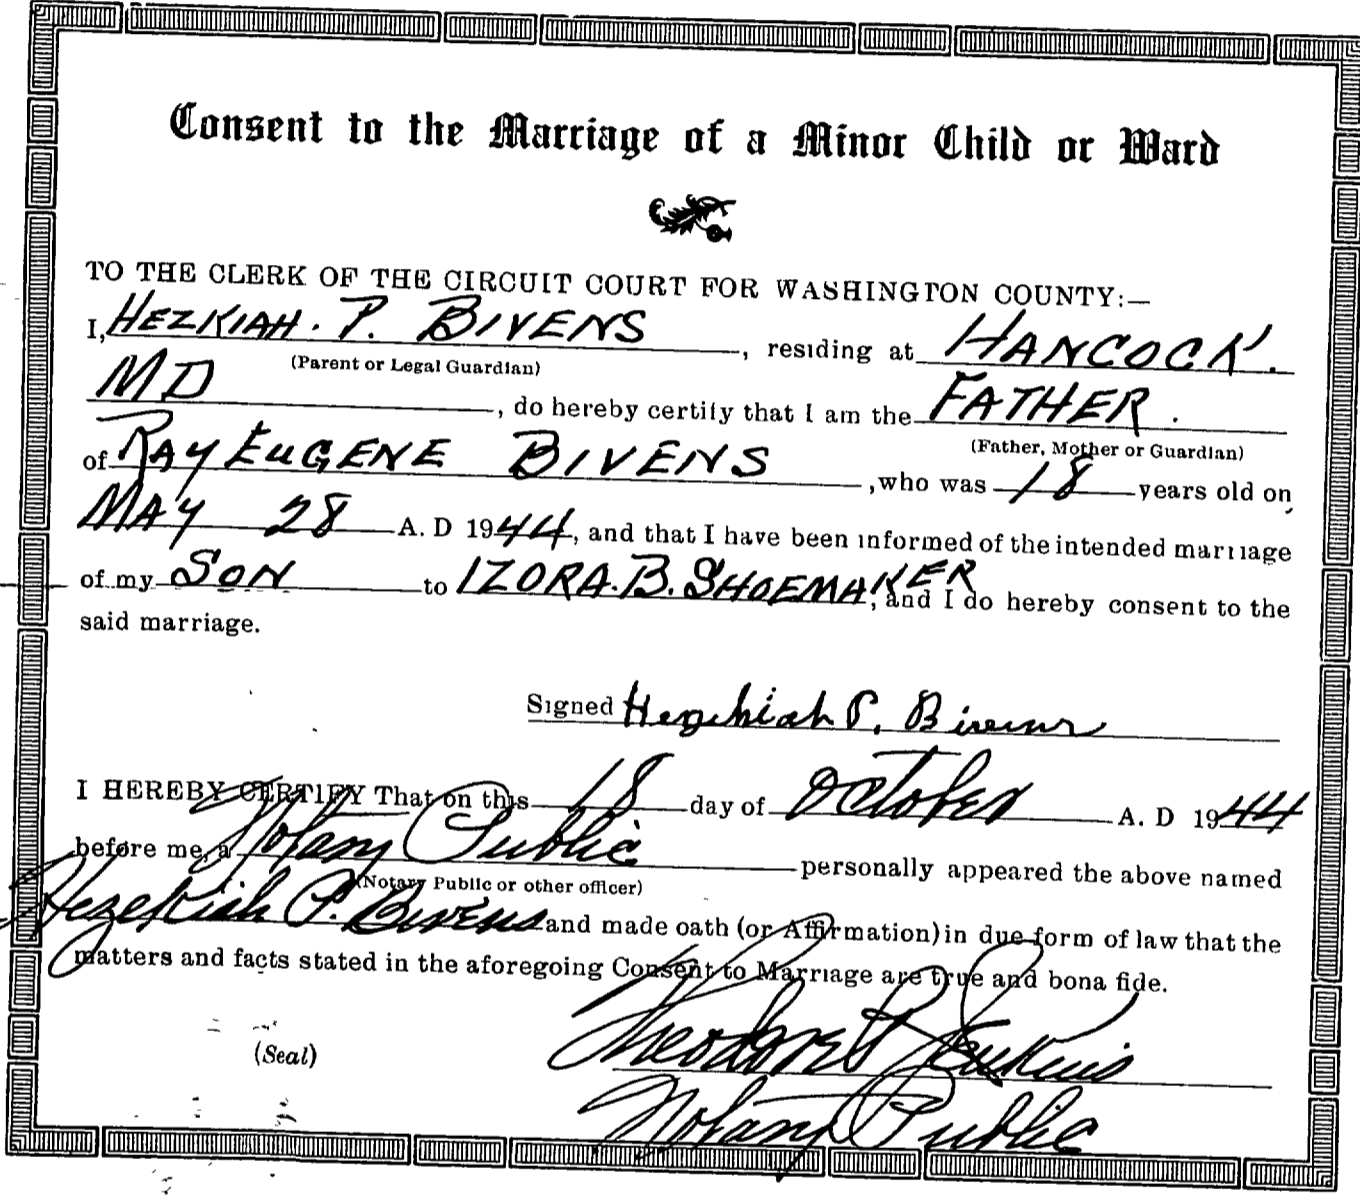 Consent to the Marriage of a Minor Child or Ward
TO THE CLERK OF THE CIRCUIT COURT FOR WASHINGTON COUNTY:—
I, HEZKIAH. P. BIVENS, residing at HANCOCK.
(Parent or Legal Guardian)
MD, do hereby certify that I am the FATHER.
(Father, Mother or Guardian)
of RAY EUGENE BIVENS, who was 18 years old on
MAY 28 A. D 1944, and that I have been informed of the intended marriage
of my SON to IZORA. B. SHOEMAKER, and I do hereby consent to the
said marriage.
Signed Hezekiah P. Bivens
I HEREBY CERTIFY That on this 18 day of October A. D 1944
before me, a Notary Public personally appeared the above named
(Notary Public or other officer)
Hezekiah P. Bivens and made oath (or Affirmation) in due form of law that the
matters and facts stated in the aforegoing Consent to Marriage are true and bona fide.
Theodore Jenkins
(Seal)
Notary Public